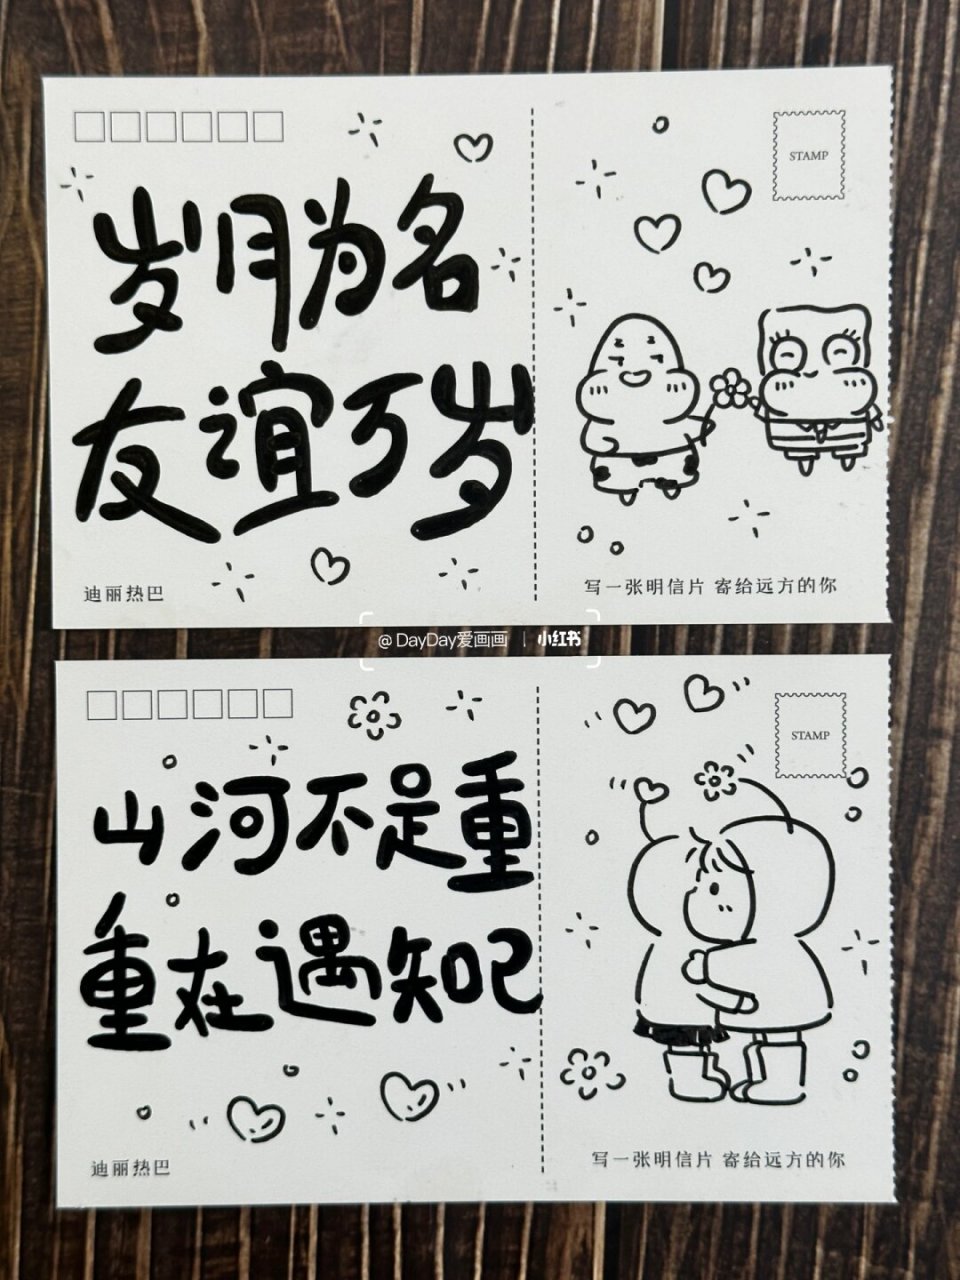 STAMP
岁月为名
友谊万岁
迪丽热巴
写一张明信片 寄给远方的你
@DayDay爱画画 | 小红书
STAMP
山河不足重
重在遇知己
迪丽热巴
写一张明信片 寄给远方的你